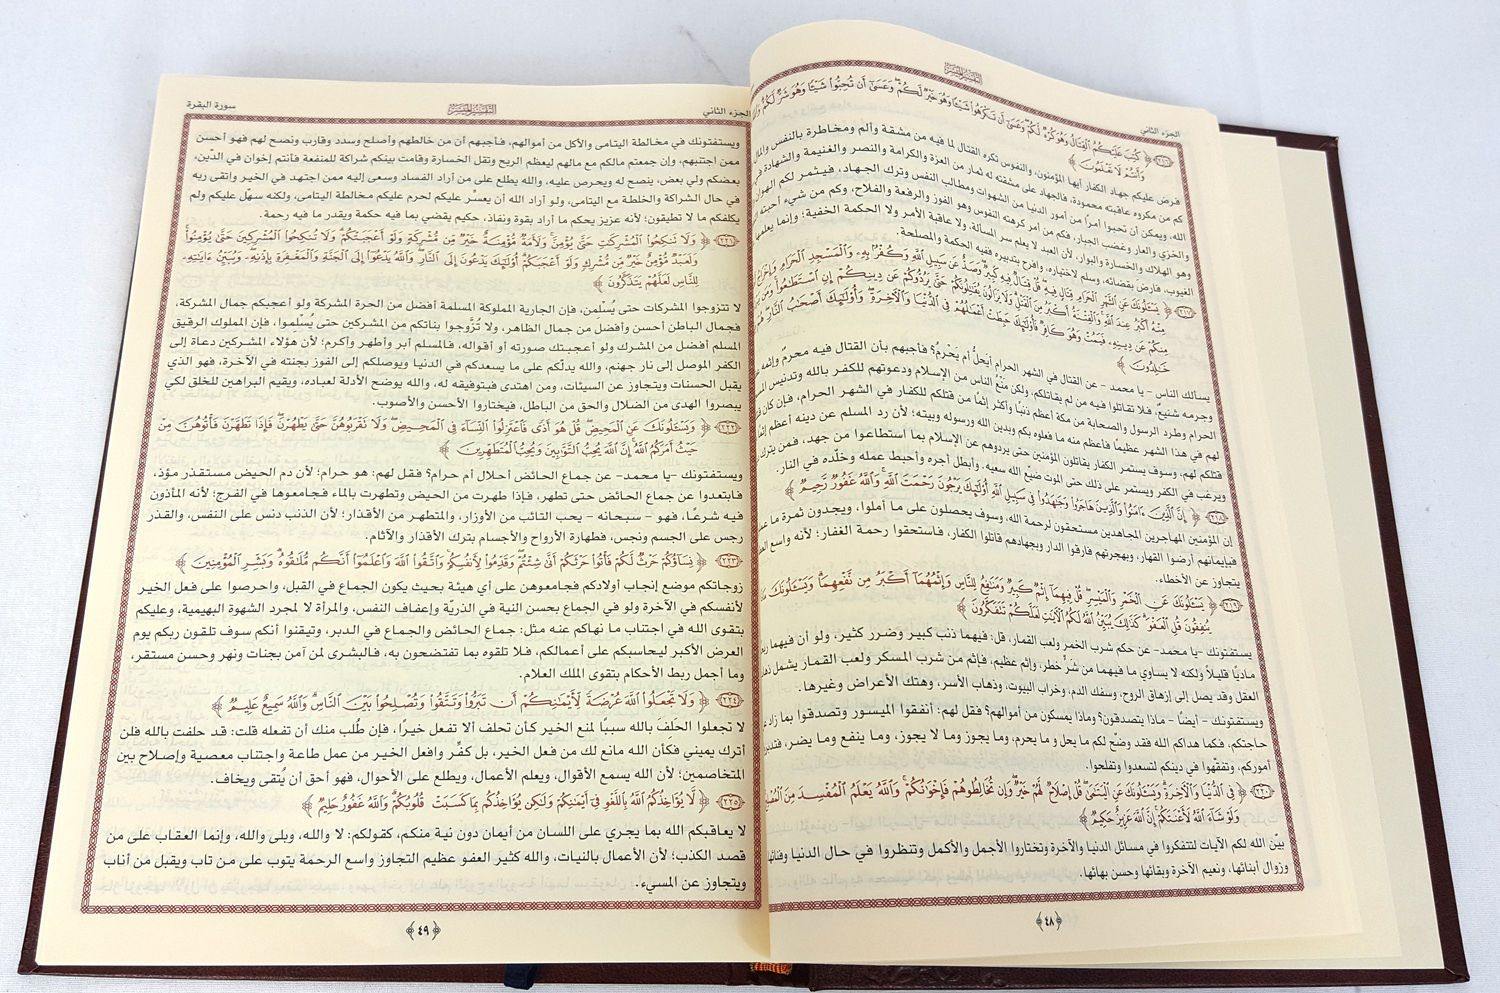 التفسير الميسر
الجزء الثاني
﴿٢١٦﴾ ﴿ كُتِبَ عَلَيْكُمُ ٱلْقِتَالُ وَهُوَ كُرْهٌ لَّكُمْ وَعَسَىٰٓ أَن تَكْرَهُوا۟ شَيْـًٔا وَهُوَ خَيْرٌ لَّكُمْ وَعَسَىٰٓ أَن تُحِبُّوا۟ شَيْـًٔا وَهُوَ شَرٌّ لَّكُمْ
وَأَنتُمْ لَا تَعْلَمُونَ ﴾
فرض عليكم جهاد الكفار أيها المؤمنون، والنفوس تكره القتال لما فيه من مشقة وألم ومخاطرة بالنفس والمال
كم من مكروه عاقبته محمودة، فالجهاد على مشقته له ثمار من العزة والكرامة والنصر والغنيمة والشهادة في
الله، ويمكن أن تحبوا أمرًا من أمور الدنيا من الشهوات ومطالب النفس وترك الجهاد، فيثمر لكم الهوان
والخزي والعار وغضب الجبار، فكم من أمر كرهته النفوس وهو الفوز والرفعة والفلاح، وكم من شيء أحبته
وهو الهلاك والخسارة والبوار، لأن العبد لا يعلم سر المسألة، ولا عاقبة الأمر ولا الحكمة الخفية؛ وإنما يعلمها
الغيوب، فارض بقضائه، وسلم لاختياره، وافرح بتدبيره ففيه الحكمة والمصلحة.
﴿٢١٧﴾ ﴿ يَسْـَٔلُونَكَ عَنِ ٱلشَّهْرِ ٱلْحَرَامِ قِتَالٍ فِيهِ قُلْ قِتَالٌ فِيهِ كَبِيرٌ وَصَدٌّ عَن سَبِيلِ ٱللَّهِ وَكُفْرٌۢ بِهِۦ وَٱلْمَسْجِدِ ٱلْحَرَامِ وَإِخْرَاجُ
مِنْهُ أَكْبَرُ عِندَ ٱللَّهِ وَٱلْفِتْنَةُ أَكْبَرُ مِنَ ٱلْقَتْلِ وَلَا يَزَالُونَ يُقَـٰتِلُونَكُمْ حَتَّىٰ يَرُدُّوكُمْ عَن دِينِكُمْ إِنِ ٱسْتَطَـٰعُوا۟ وَمَن
مِنكُمْ عَن دِينِهِۦ فَيَمُتْ وَهُوَ كَافِرٌ فَأُو۟لَـٰٓئِكَ حَبِطَتْ أَعْمَـٰلُهُمْ فِى ٱلدُّنْيَا وَٱلْـَٔاخِرَةِ وَأُو۟لَـٰٓئِكَ أَصْحَـٰبُ ٱلنَّارِ
خَـٰلِدُونَ ﴾
يسألك الناس - يا محمد - عن القتال في الشهر الحرام أيَحلُّ أم يَحْرمُ؟ فأجبهم بأن القتال فيه محرمٌ وإثمه
وجرمه شنيعٌ، فلا تقاتلوا فيه من لم يقاتلكم، ولكن منْعُ الناس من الإسلام ودعوتهم للكفر بالله وتدنيس
الحرام وطرد الرسول والصحابة من مكة أعظم ذنبًا وأكثر إثمًا من قتلكم للكفار في الشهر الحرام، فإن كان
لهم في هذا الشهر عظيمًا فأعظم منه ما فعلوه بكم وبدين الله ورسوله وبيته؛ لأن رد المسلم عن دينه أعظم
قتلكم لهم، وسوف يستمر الكفار يقاتلون المؤمنين حتى يردوهم عن الإسلام بما استطاعوا من جهد، فمن
ويرغب في الكفر ويستمر على ذلك حتى الموت ضيّع الله سعيه. وأبطل أجره وأحبط عمله وخلّده في النار.
﴿٢١٨﴾ ﴿ إِنَّ ٱلَّذِينَ ءَامَنُوا۟ وَٱلَّذِينَ هَاجَرُوا۟ وَجَـٰهَدُوا۟ فِى سَبِيلِ ٱللَّهِ أُو۟لَـٰٓئِكَ يَرْجُونَ رَحْمَتَ ٱللَّهِ وَٱللَّهُ غَفُورٌ رَّحِيمٌ ﴾
إن المؤمنين المهاجرين المجاهدين مستحقون لرحمة الله، وسوف يحصلون على ما أملوا، ويجدون ثمرة ما
فبإيمانهم أرضوا القهار، وبهجرتهم فارقوا الدار وبجهادهم قاتلوا الكفار، فاستحقوا رحمة الغفار؛ لأنه واسع
يتجاوز عن الأخطاء.
﴿٢١٩﴾ ﴿ يَسْـَٔلُونَكَ عَنِ ٱلْخَمْرِ وَٱلْمَيْسِرِ قُلْ فِيهِمَآ إِثْمٌ كَبِيرٌ وَمَنَـٰفِعُ لِلنَّاسِ وَإِثْمُهُمَآ أَكْبَرُ مِن نَّفْعِهِمَا وَيَسْـَٔلُونَكَ
يُنفِقُونَ قُلِ ٱلْعَفْوَ كَذَٰلِكَ يُبَيِّنُ ٱللَّهُ لَكُمُ ٱلْـَٔايَـٰتِ لَعَلَّكُمْ تَتَفَكَّرُونَ ﴾
يستفتونك -يا محمد- عن حكم شرب الخمر ولعب القمار، قل: فيهما ذنب كبير وضرر كثير، ولو أن فيهما
ماديًّا قليلاً ولكنه لا يساوي ما فيهما من شرٍّ خطر، وإثم عظيم، فإثم من شرب المسكر ولعب القمار يشمل
العقل وقد يصل إلى إزهاق الروح، وسفك الدم، وخراب البيوت، وذهاب الأسر، وهتك الأعراض وغيرها.
ويستفتونك - أيضًا - ماذا يتصدقون؟ وماذا يمسكون من أموالهم؟ فقل لهم: أنفقوا الميسور وتصدقوا بما زاد
حاجتكم، فكما هداكم الله فقد وضّح لكم ما يحل و ما يحرم، وما يجوز وما لا يجوز، وما ينفع وما يضر،
أموركم، وتفقّهوا في دينكم لتسعدوا وتفلحوا.
﴿٢٢٠﴾ ﴿ فِى ٱلدُّنْيَا وَٱلْـَٔاخِرَةِ وَيَسْـَٔلُونَكَ عَنِ ٱلْيَتَـٰمَىٰ قُلْ إِصْلَاحٌ لَّهُمْ خَيْرٌ وَإِن تُخَالِطُوهُمْ فَإِخْوَٰنُكُمْ وَٱللَّهُ يَعْلَمُ ٱلْمُفْسِدَ مِنَ
وَلَوْ شَآءَ ٱللَّهُ لَأَعْنَتَكُمْ إِنَّ ٱللَّهَ عَزِيزٌ حَكِيمٌ ﴾
بيّن الله لكم الآيات لتتفكروا في مسائل الدنيا والآخرة وتختاروا الأجمل والأكمل وتنظروا في حال الدنيا
وزوال أبنائها، ونعيم الآخرة وبقائها وحسن بهائها.
﴿٤٨﴾
الجزء الثاني
التفسير الميسر
سورة البقرة
ويستفتونك في مخالطة اليتامى والأكل من أموالهم، فأجبهم أن من خالطهم وأصلح وسدد وقارب ونصح لهم فهو أحسن
ممن اجتنبهم، وإن جمعتم مالكم مع مالهم ليعظم الربح وتقل الخسارة وقامت بينكم شراكة للمنفعة فأنتم إخوان في الدّين،
بعضكم ولي بعض، ينصح له ويحرص عليه، والله يطلع على من أراد الفساد وسعى إليه ممن اجتهد في الخير واتقى ربه
في حال الشراكة والخلطة مع اليتامى، ولو أراد الله أن يعسُّر عليكم لحرم عليكم مخالطة اليتامى، ولكنه سهّل عليكم ولم
يكلفكم ما لا تطيقون؛ لأنه عزيز يحكم ما أراد بقوة ونفاذ، حكيم يقضي بما فيه حكمة ويقدر ما فيه رحمة.
﴿٢٢١﴾ ﴿ وَلَا تَنكِحُوا۟ ٱلْمُشْرِكَـٰتِ حَتَّىٰ يُؤْمِنَّ وَلَأَمَةٌ مُّؤْمِنَةٌ خَيْرٌ مِّن مُّشْرِكَةٍ وَلَوْ أَعْجَبَتْكُمْ وَلَا تُنكِحُوا۟ ٱلْمُشْرِكِينَ حَتَّىٰ يُؤْمِنُوا۟
وَلَعَبْدٌ مُّؤْمِنٌ خَيْرٌ مِّن مُّشْرِكٍ وَلَوْ أَعْجَبَكُمْ أُو۟لَـٰٓئِكَ يَدْعُونَ إِلَى ٱلنَّارِ وَٱللَّهُ يَدْعُوٓا۟ إِلَى ٱلْجَنَّةِ وَٱلْمَغْفِرَةِ بِإِذْنِهِۦ وَيُبَيِّنُ ءَايَـٰتِهِۦ
لِلنَّاسِ لَعَلَّهُمْ يَتَذَكَّرُونَ ﴾
لا تتزوجوا المشركات حتى يُسلمن، فإن الجارية المملوكة المسلمة أفضل من الحرة المشركة ولو أعجبكم جمال المشركة،
فجمال الباطن أحسن وأفضل من جمال الظاهر، ولا تَزَوَّجوا بناتكم من المشركين حتى يُسلموا، فإن المملوك الرقيق
المسلم أفضل من المشرك ولو أعجبتك صورته أو أقواله، فالمسلم أبر وأطهر وأكرم؛ لأن هؤلاء المشركين دعاة إلى
الكفر الموصل إلى نار جهنم، والله يدلّكم على ما يسعدكم في الدنيا ويوصلكم إلى الفوز بجنته في الآخرة، فهو الذي
يقبل الحسنات ويتجاوز عن السيئات، ومن اهتدى فبتوفيقه له، والله يوضح الأدلة لعباده، ويقيم البراهين للخلق لكي
يبصروا الهدى من الضلال والحق من الباطل، فيختاروا الأحسن والأصوب.
﴿٢٢٢﴾ ﴿ وَيَسْـَٔلُونَكَ عَنِ ٱلْمَحِيضِ قُلْ هُوَ أَذًى فَٱعْتَزِلُوا۟ ٱلنِّسَآءَ فِى ٱلْمَحِيضِ وَلَا تَقْرَبُوهُنَّ حَتَّىٰ يَطْهُرْنَ فَإِذَا تَطَهَّرْنَ فَأْتُوهُنَّ مِنْ
حَيْثُ أَمَرَكُمُ ٱللَّهُ إِنَّ ٱللَّهَ يُحِبُّ ٱلتَّوَّٰبِينَ وَيُحِبُّ ٱلْمُتَطَهِّرِينَ ﴾
ويستفتونك -يا محمد- عن جماع الحائض أحلال أم حرام؟ فقل لهم: هو حرام؛ لأن دم الحيض مستقذر مؤذ،
فابتعدوا عن جماع الحائض حتى تطهر، فإذا طهرت من الحيض وتطهرت بالماء فجامعوها في الفرج؛ لأنه المأذون
فيه شرعًا، فهو - سبحانه - يحب التائب من الأوزار، والمتطهر من الأقذار؛ لأن الذنب دنس على النفس، والقذر
رجس على الجسم ونجس، فطهارة الأرواح والأجسام بترك الأقذار والآثام.
﴿٢٢٣﴾ ﴿ نِسَآؤُكُمْ حَرْثٌ لَّكُمْ فَأْتُوا۟ حَرْثَكُمْ أَنَّىٰ شِئْتُمْ وَقَدِّمُوا۟ لِأَنفُسِكُمْ وَٱتَّقُوا۟ ٱللَّهَ وَٱعْلَمُوٓا۟ أَنَّكُم مُّلَـٰقُوهُ وَبَشِّرِ ٱلْمُؤْمِنِينَ ﴾
زوجاتكم موضع إنجاب أولادكم فجامعوهن على أي هيئة بحيث يكون الجماع في القبل، واحرصوا على فعل الخير
لأنفسكم في الآخرة ولو في الجماع بحسن النية في الذريّة وإعفاف النفس، والمرأة لا لمجرد الشهوة البهيمية، وعليكم
بتقوى الله في اجتناب ما نهاكم عنه مثل: جماع الحائض والجماع في الدبر، وتيقنوا أنكم سوف تلقون ربكم يوم
العرض الأكبر ليحاسبكم على أعمالكم، فلا تلقوه بما تفتضحون به، فالبشرى لمن آمن بجنات ونهر وحسن مستقر،
وما أجمل ربط الأحكام بتقوى الملك العلام.
﴿٢٢٤﴾ ﴿ وَلَا تَجْعَلُوا۟ ٱللَّهَ عُرْضَةً لِّأَيْمَـٰنِكُمْ أَن تَبَرُّوا۟ وَتَتَّقُوا۟ وَتُصْلِحُوا۟ بَيْنَ ٱلنَّاسِ وَٱللَّهُ سَمِيعٌ عَلِيمٌ ﴾
لا تجعلوا الحَلفَ بالله سببًا لمنع الخير كأن تحلف ألا تفعل خيرًا، فإن طُلب منك أن تفعله قلت: قد حلفت بالله فلن
أترك يميني فكأن الله مانع لك من فعل الخير، بل كفّر وافعل الخير من عمل طاعة واجتناب معصية وإصلاح بين
المتخاصمين؛ لأن الله يسمع الأقوال، ويعلم الأعمال، ويطلع على الأحوال، فهو أحق أن يُتقى ويخاف.
﴿٢٢٥﴾ ﴿ لَّا يُؤَاخِذُكُمُ ٱللَّهُ بِٱللَّغْوِ فِىٓ أَيْمَـٰنِكُمْ وَلَـٰكِن يُؤَاخِذُكُم بِمَا كَسَبَتْ قُلُوبُكُمْ وَٱللَّهُ غَفُورٌ حَلِيمٌ ﴾
لا يعاقبكم الله بما يجري على اللسان من أيمان دون نية منكم، كقولكم: لا والله، وبلى والله، وإنما العقاب على من
قصد الكذب؛ لأن الأعمال بالنيات، والله كثير العفو عظيم التجاوز واسع الرحمة يتوب على من تاب ويقبل من أناب
ويتجاوز عن المسيء.
﴿٤٩﴾